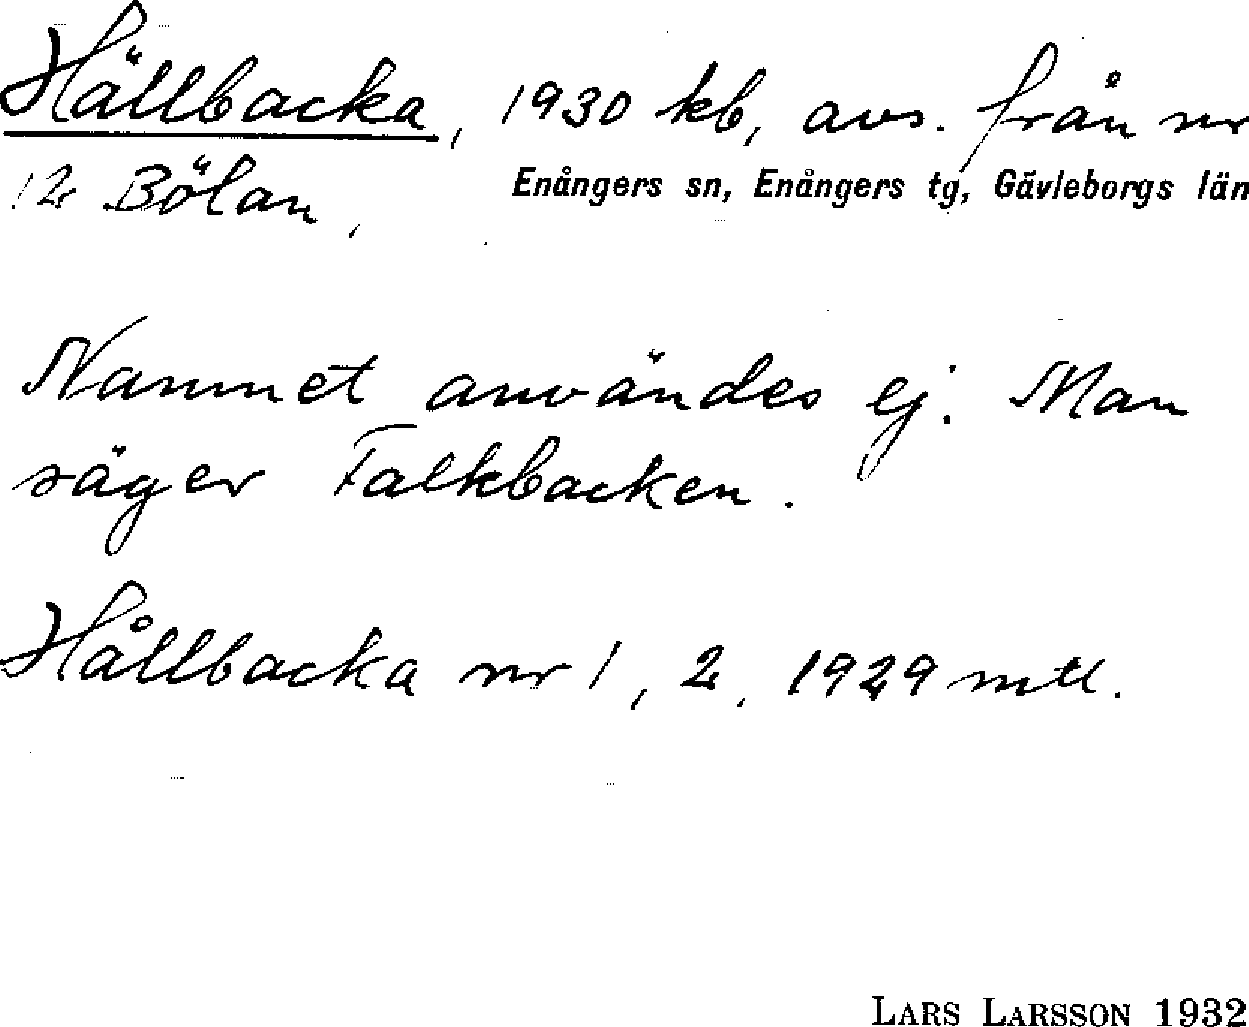 Hällbacka, 1930 kb, avs. från nr
12 Bölan,
Enångers sn, Enångers tg, Gävleborgs län
Namnet användes ej. Man
säger Falkbacken.
Hållbacka nr 1, 2, 1929 mtl.
LARS LARSSON 1932